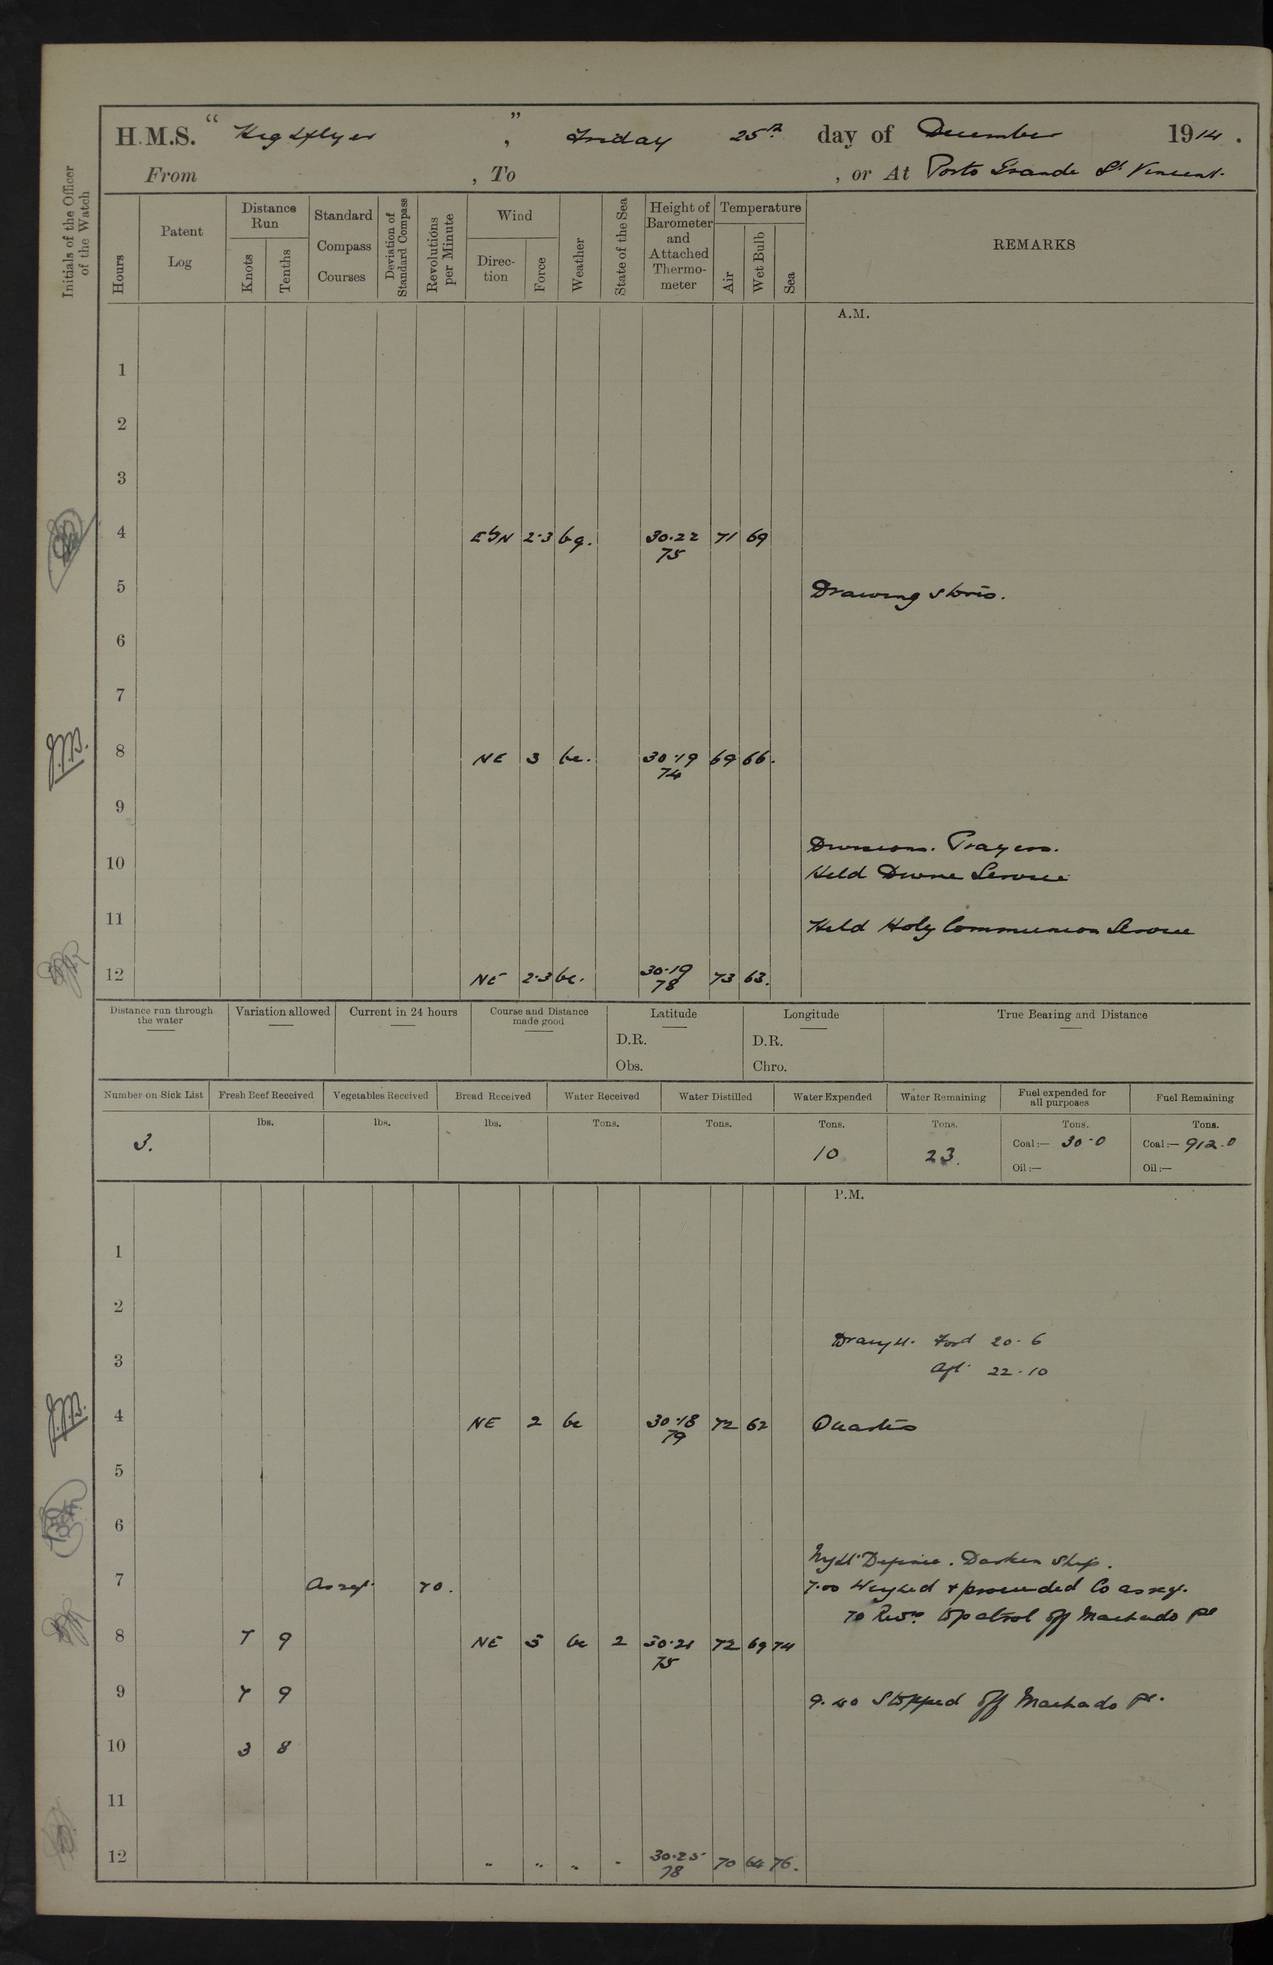 H.M.S. “Highflyer”, Friday 25th day of December 1914.
From , To , or At Porto Grande St Vincent.
Initials of the Officer of the Watch
Hours
Patent Log
Distance Run
Knots
Tenths
Standard Compass Courses
Deviation of Standard Compass
Revolutions per Minute
Wind
Direction
Force
Weather
State of the Sea
Height of Barometer and Attached Thermometer
Temperature
Air
Wet Bulb
Sea
REMARKS
A.M.
1
2
3
4 EbN 2·3 bq. 30·22 71 69
75
5 Drawing stores.
6
7
8 NE 3 bc. 30·19 69 66.
74
9
Divisions. Prayers.
10 Held Divine Service
11 Held Holy Communion Service
12 NE 2·3 bc. 30·19 73 63.
78
Distance run through the water
Variation allowed
Current in 24 hours
Course and Distance made good
Latitude
D.R.
Obs.
Longitude
D.R.
Chro.
True Bearing and Distance
Number on Sick List Fresh Beef Received Vegetables Received Bread Received Water Received Water Distilled Water Expended Water Remaining Fuel expended for all purposes Fuel Remaining
lbs. lbs. lbs. Tons. Tons. Tons. Tons. Tons. Tons.
3. 10 23. Coal:— 30·0 Coal:— 912·0
Oil:— Oil:—
P.M.
1
2
Draught. Ford 20·6
3 Aft 22·10
4 NE 2 bc 30·18 72 62 Quarters
79
5
6
Night Defence. Darken Ship.
7 As req. 70. 7.00 Weighed & proceeded Co as req.
70 Revns to patrol off Machado pt
8 7 9 NE 3 bc 2 30·21 72 69 74
75
9 7 9 9.40 Stopped off Machado pt.
10 3 8
11
12 " " " " 30·25 70 64 76.
78